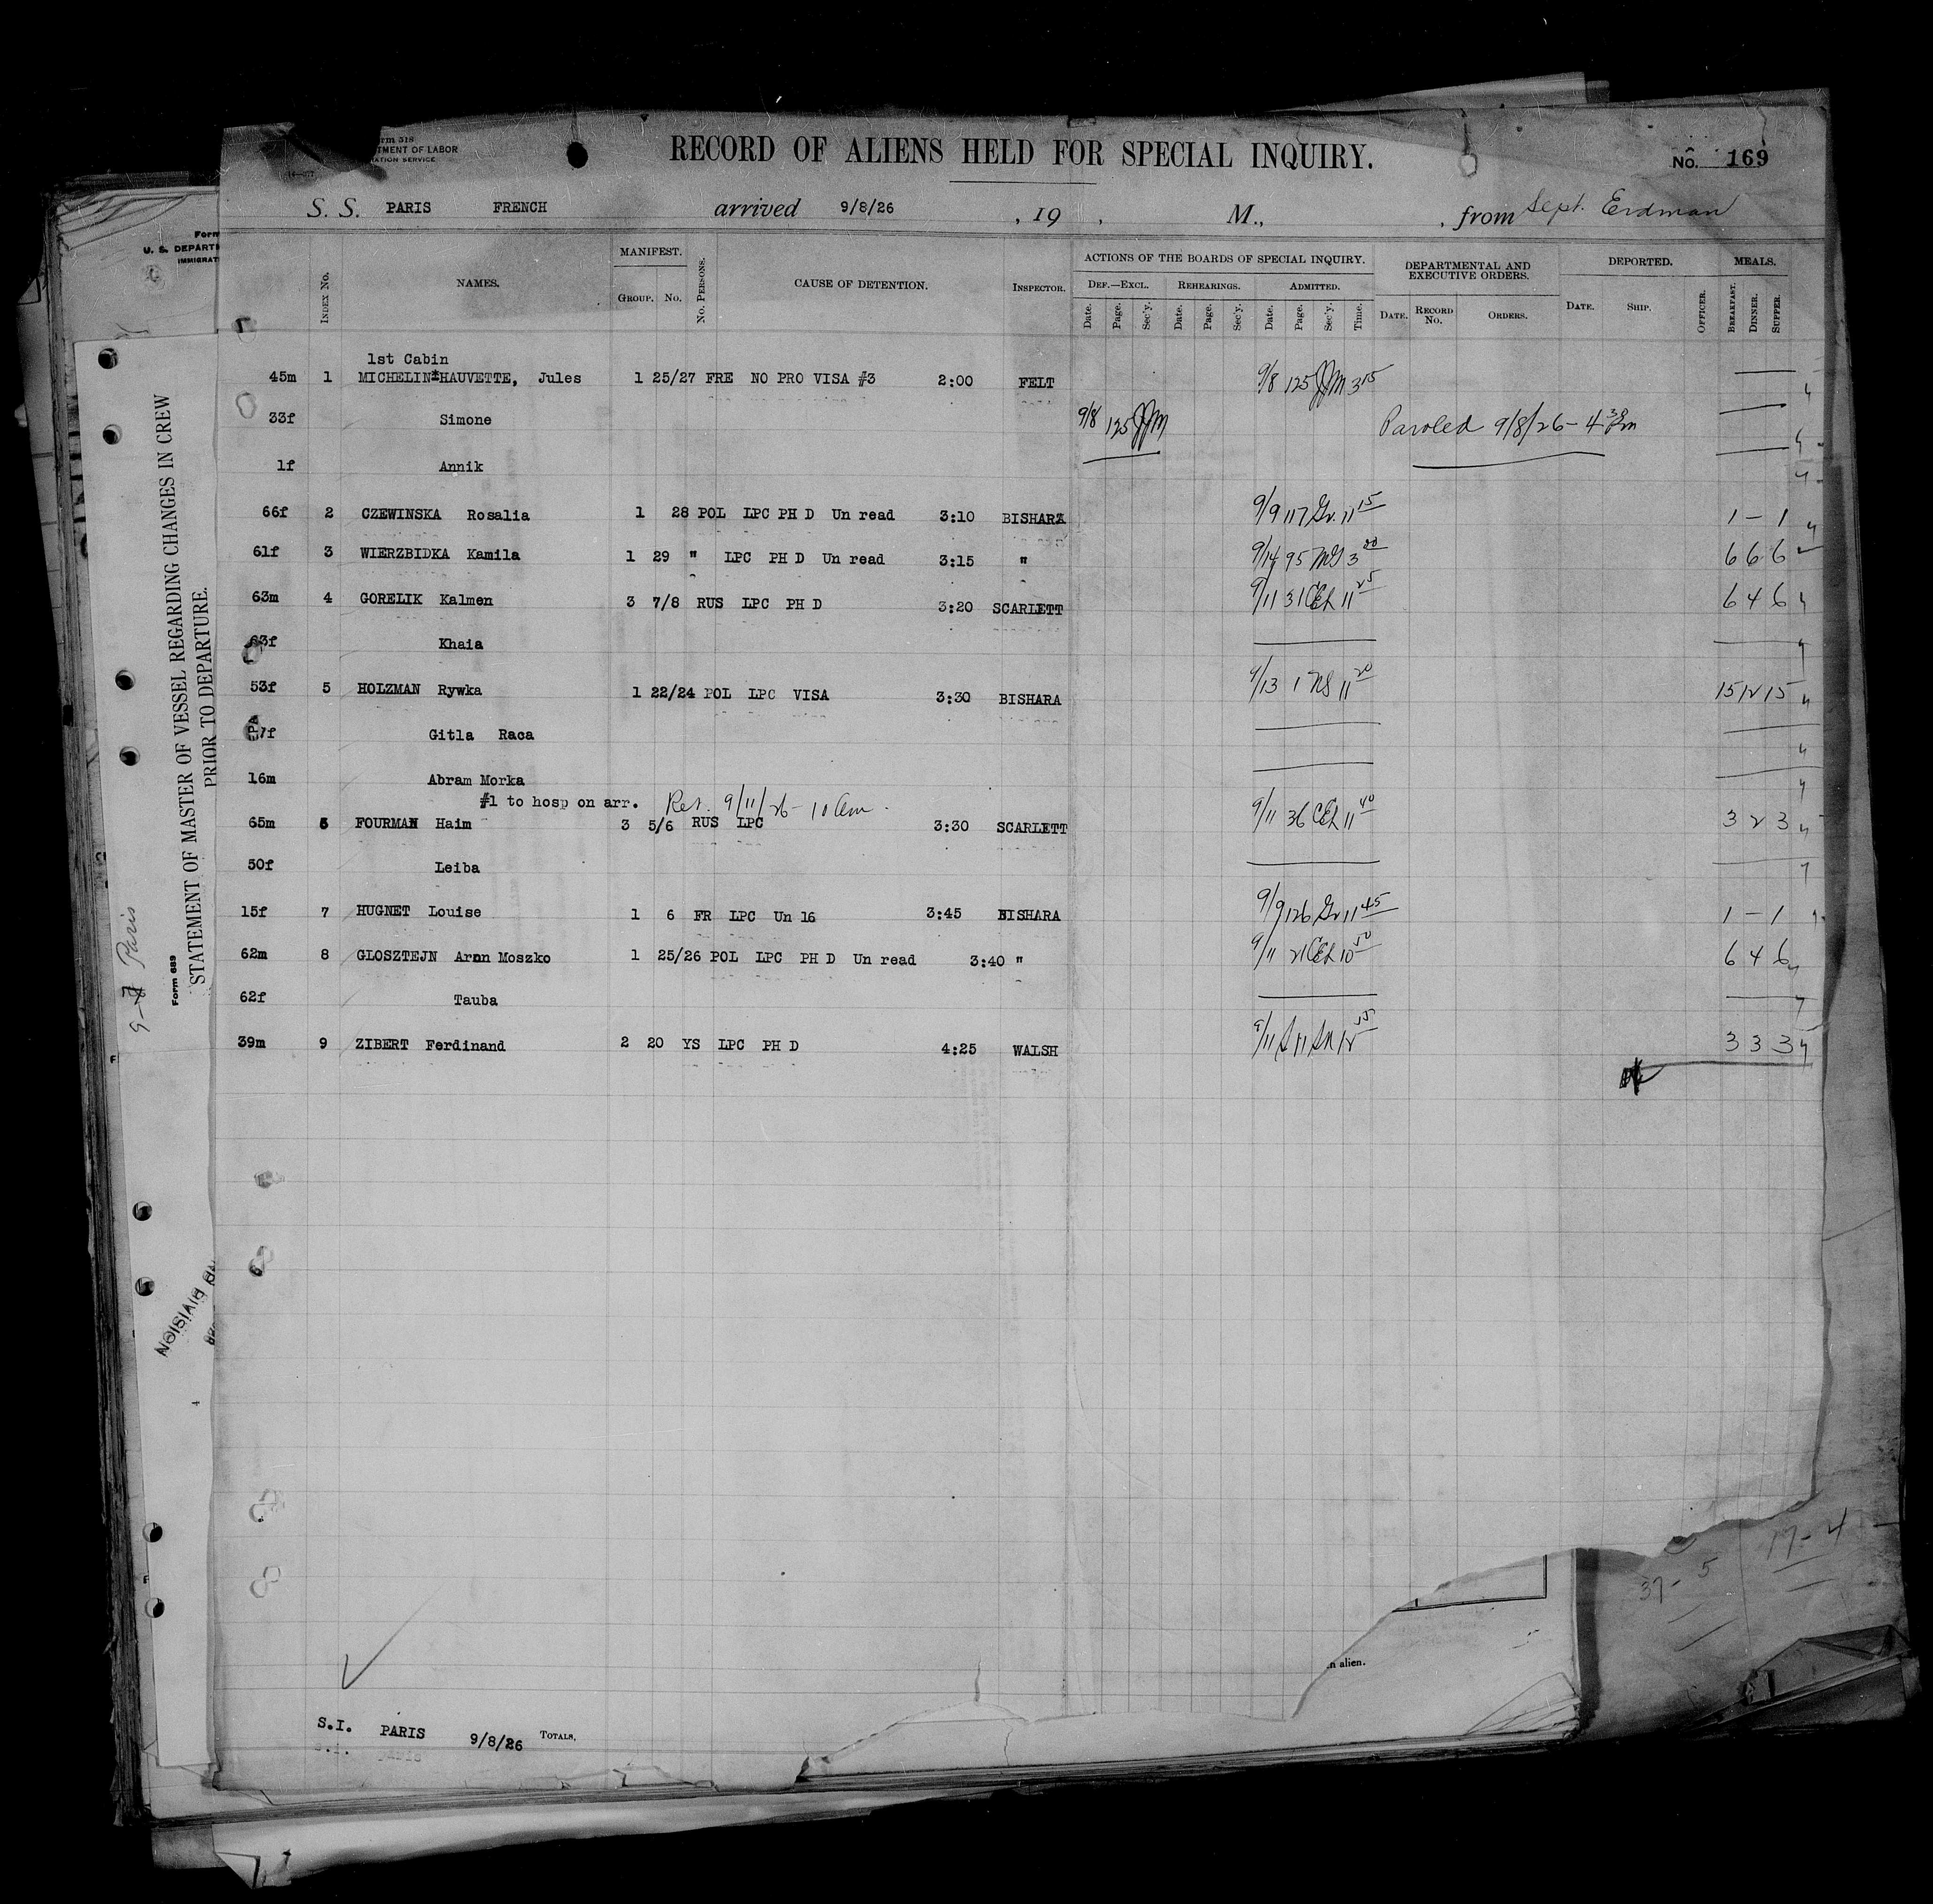 Form 518
TMENT OF LABOR
RATION SERVICE
RECORD OF ALIENS HELD FOR SPECIAL INQUIRY.
No. 169
S. S. PARIS FRENCH arrived 9/8/26 , 19 , M., , from Sept. Erdman
Form
U. S. DEPARTM
IMMIGRAT
INDEX NO. NAMES. MANIFEST. GROUP. NO. NO. PERSONS. CAUSE OF DETENTION. INSPECTOR.
ACTIONS OF THE BOARDS OF SPECIAL INQUIRY.
DEF.—EXCL. REHEARINGS. ADMITTED.
Date. Page. Sec'y. Date. Page. Sec'y. Date. Page. Sec'y. Time.
DEPARTMENTAL AND EXECUTIVE ORDERS.
DATE. RECORD NO. ORDERS.
DEPORTED.
DATE. SHIP. OFFICER.
MEALS.
BREAKFAST. DINNER. SUPPER.
1st Cabin
45m 1 MICHELIN*HAUVETTE, Jules 1 25/27 FRE NO PRO VISA #3 2:00 FELT 9/8 125 JJM 3 15
33f Simone 9/8 125 JJM Paroled 9/8/26 - 4 30 Pm
1f Annik
66f 2 CZEWINSKA Rosalia 1 28 POL LPC PH D Un read 3:10 BISHARA 9/9 117 Gr. 11 15 1 — 1
61f 3 WIERZBIDKA Kamila 1 29 " LPC PH D Un read 3:15 " 9/14 95 MG 3 00 6 6 6
63m 4 GORELIK Kalmen 3 7/8 RUS LPC PH D 3:20 SCARLETT 9/11 31 CEL 11 25 6 4 6
63f Khaia
53f 5 HOLZMAN Rywka 1 22/24 POL LPC VISA 3:30 BISHARA 9/13 1 NS 11 20 15 12 15
7f Gitla Raca
16m Abram Morka
#1 to hosp on arr. Ret. 9/11/26 - 10 am.
65m 6 FOURMAN Haim 3 5/6 RUS LPC 3:30 SCARLETT 9/11 36 CEL 11 40 3 2 3
50f Leiba
15f 7 HUGNET Louise 1 6 FR LPC Un 16 3:45 BISHARA 9/9 126 Gr 11 45 1 — 1
62m 8 GLOSZTEJN Aron Moszko 1 25/26 POL LPC PH D Un read 3:40 " 9/11 21 CEL 10 50 6 4 6
62f Tauba
39m 9 ZIBERT Ferdinand 2 20 YS LPC PH D 4:25 WALSH 9/11 3 3 3
S.I. PARIS 9/8/26 TOTALS,
n alien.
37 - 5
17 - 4
Form 689
STATEMENT OF MASTER OF VESSEL REGARDING CHANGES IN CREW
PRIOR TO DEPARTURE.
Paris
DIVISION